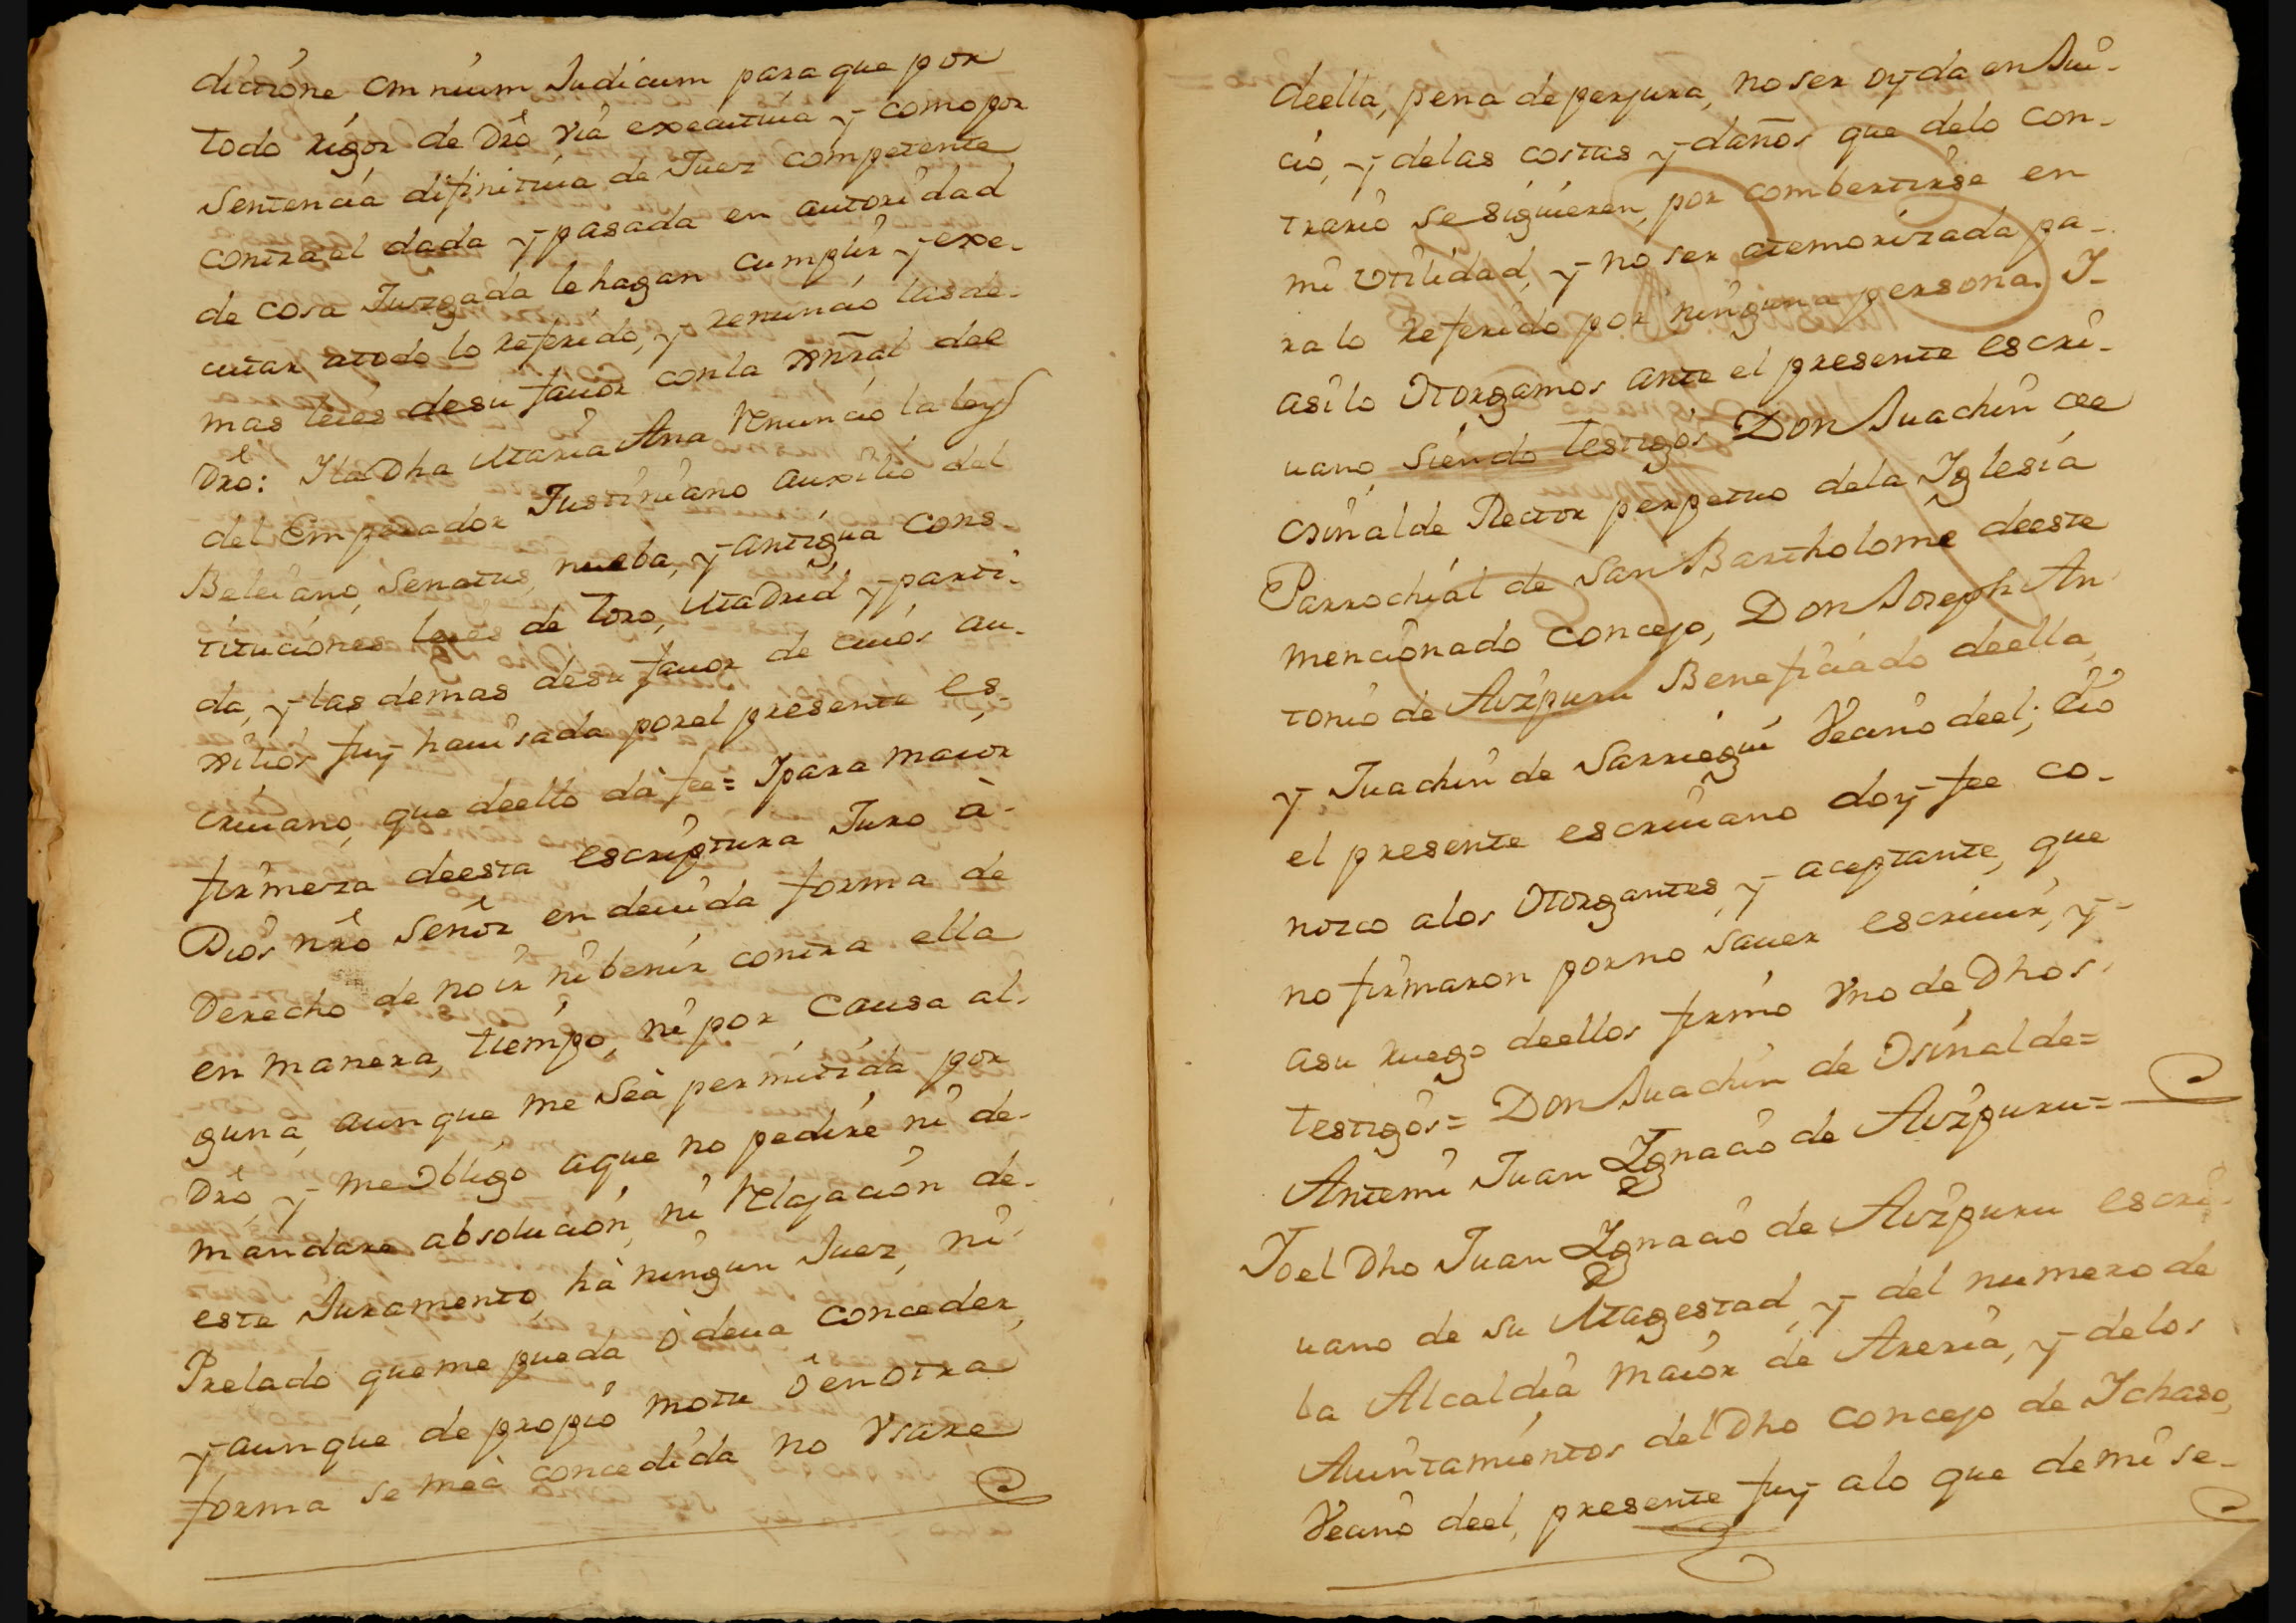 dictione omnium Judicum para que por
todo rigor de Dro via executiua y como por
sentencia difinitiua de Juez competente
contra el dada y pasada en autoridad
de cosa Juzgada le hagan cumplir y exe-
cutar atodo lo referido, y renuncio las de-
mas leies desu fauor con la gñral del
Dro: Ila Dha Maria Ana Renuncio la ley
del Emperador Justiniano auxilio del
Beleiano, Senatus, nueba, y antigua Cons-
tituciones leies de Toro, Madrid, y parti-
da, y las demas desu fauor de cuios au-
xilios fuy hauisada por el presente es-
criuano, que deello dà fee = Ipara maior
firmeza deesta escriptura Juro à
Dios nro Señor en deuida forma de
Derecho de no ir ni benir contra ella
en manera, tiempo, ni por causa al-
guna, aun que me seà permitida por
Dro, y me Obligo aque no pedire ni de-
mandare absolucion, ni Relajacion de-
este Juramento, hà ningun Juez, ni
Prelado queme pueda ò deua conceder,
y aunque de propio motu ò en otra
forma se meà concedida no Vsare
deella, pena de perjura, no ser oyda en Jui-
cio, y delas costas y daños que delo con-
trario se siguieren, por combertirse en
mi Vtilidad, y no ser atemorizada pa-
ra lo referido por ninguna persona. I-
asilo Otorgamos ante el presente escri-
uano, siendo testigos Don Juachin de
Osinalde Rector perpetuo dela Iglesia
Parrochial de San Bartholome deeste
mencionado concejo, Don Joseph An-
tonio de Auzpuru Beneficiado deella,
y Juachin de Sarriegui Vecino deel; Eio
el presente escriuano doy fee co-
nozco alos Otorgantes, y aceptante, que
no firmaron por no sauer escriuir, y-
asu ruego deellos firmo Vno de Dhos
testigos = Don Juachin de Osinalde =
Antemi Juan Ignacio de Auzpuru =
Io el Dho Juan Ignacio de Auzpuru escri-
uano de su Magestad, y del numero de
la Alcaldia maior de Areria, y delos
Aiuntamientos del Dho concejo de Ichaso,
Vecino deel, presente fuy alo que de mi se-